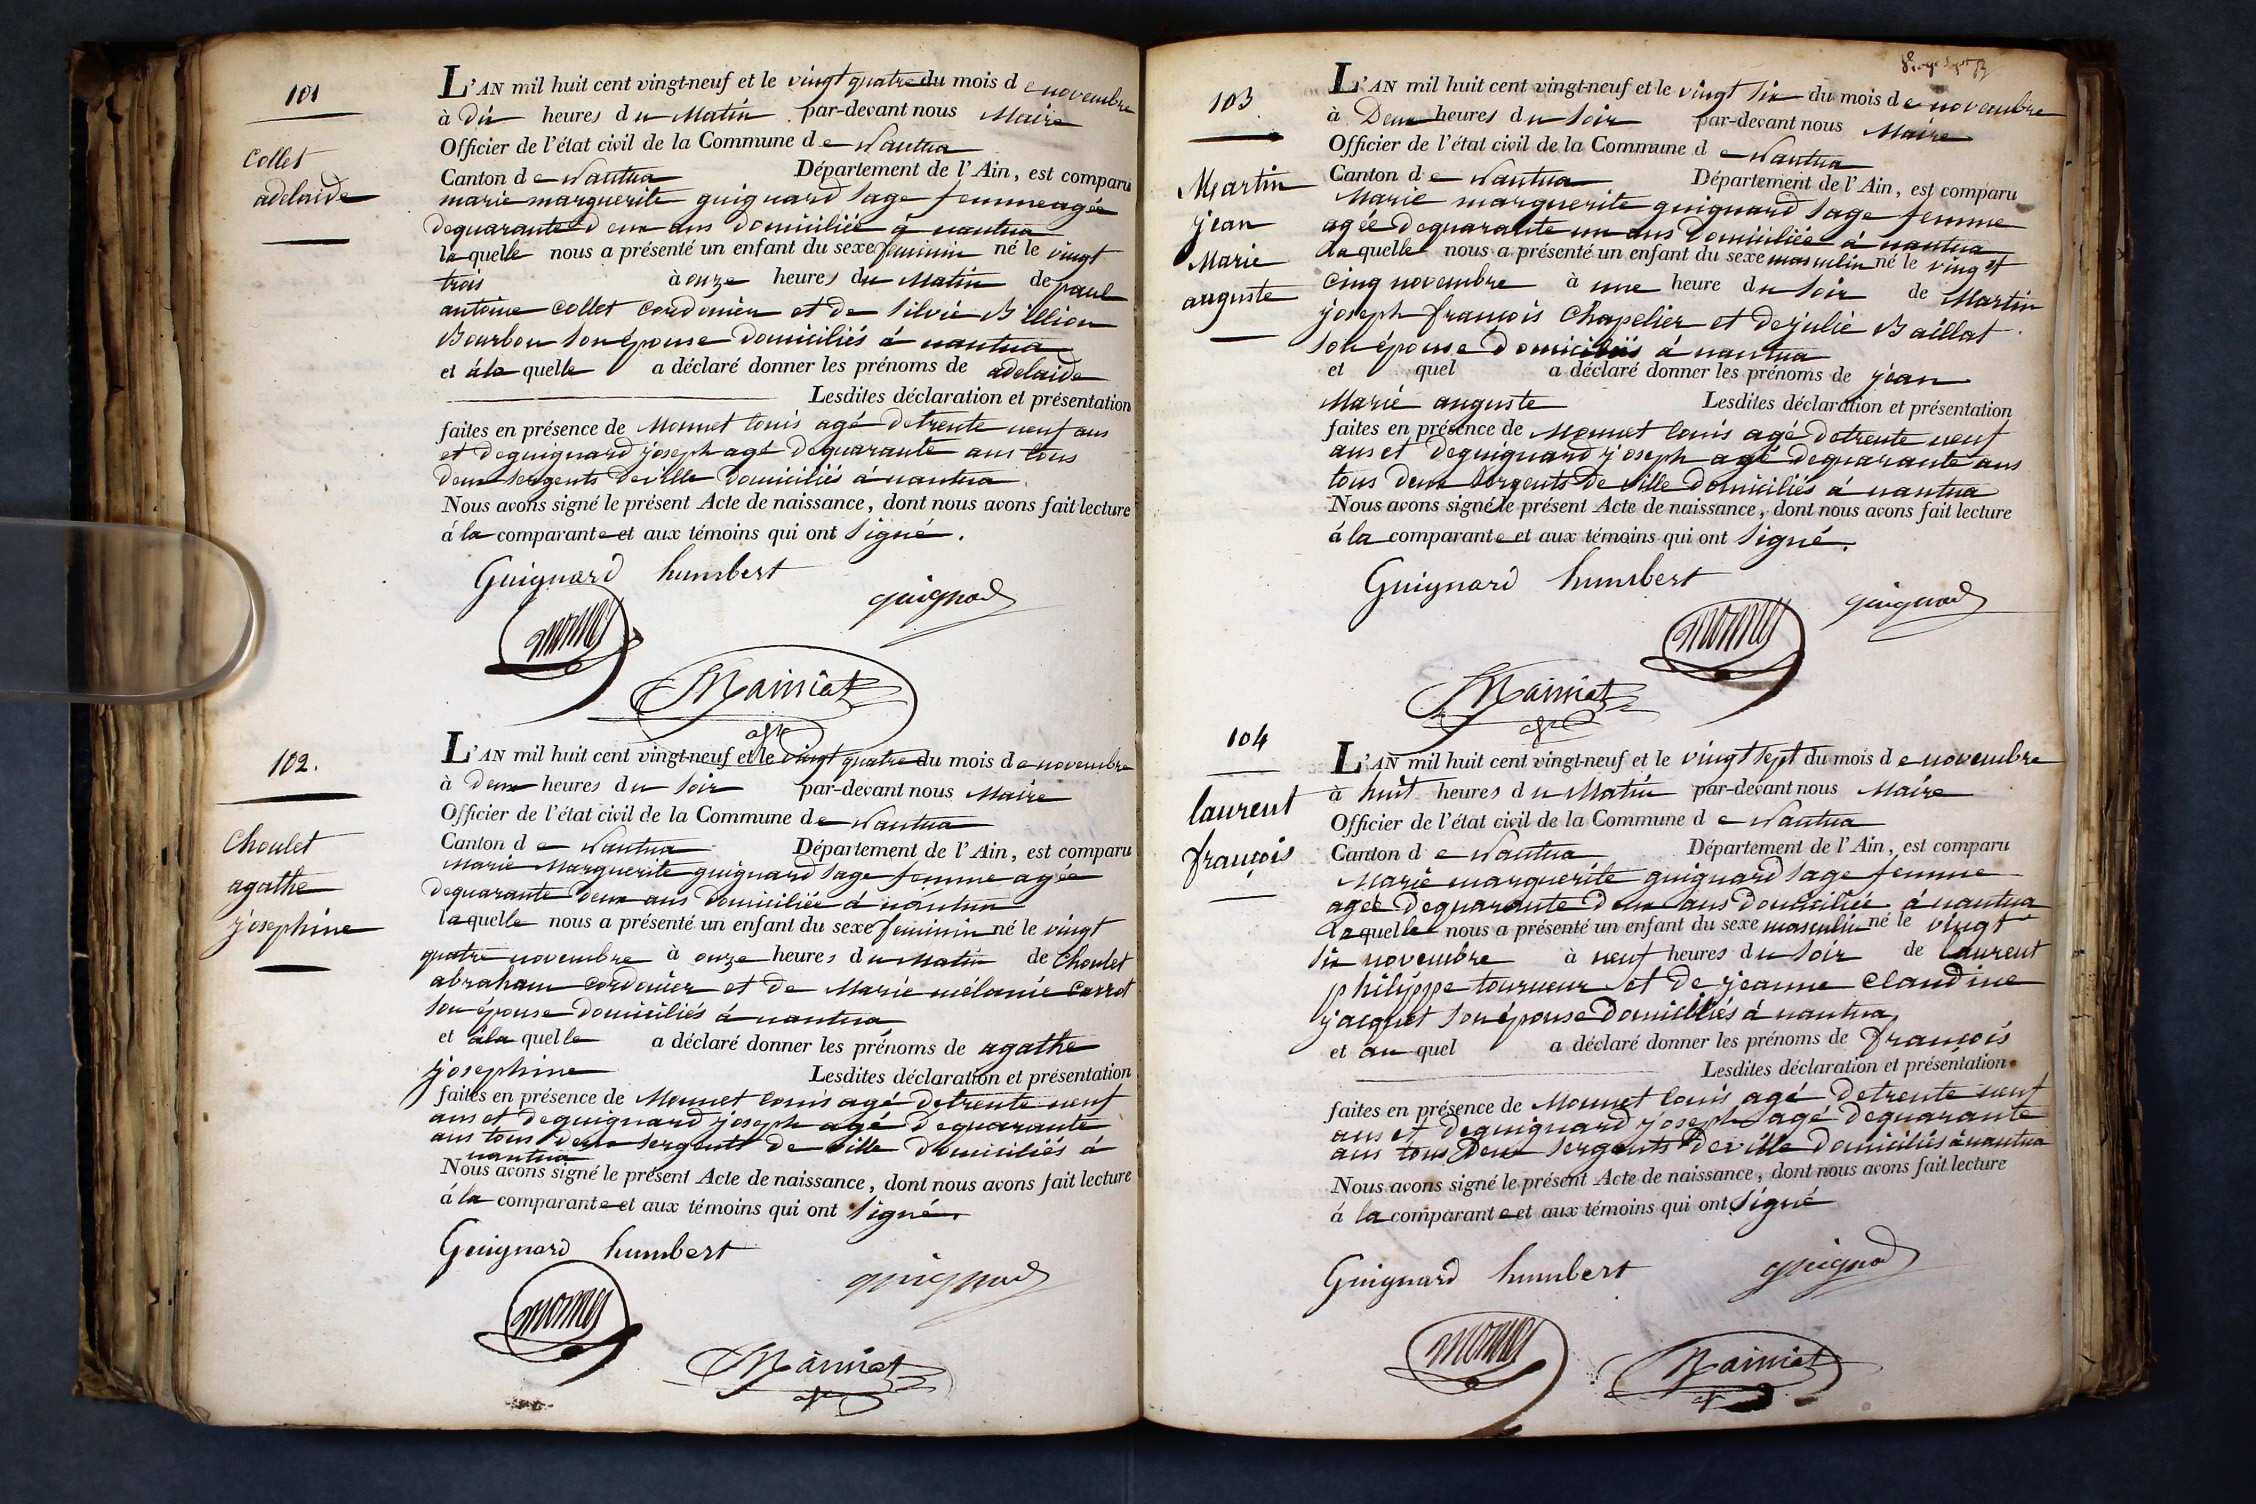 101
Collet
adelaide
L'AN mil huit cent vingt-neuf et le vingt quatre du mois de novembre
à dix heures du Matin par-devant nous Maire
Officier de l'état civil de la Commune de Nantua
Canton de Nantua Département de l'Ain, est comparu
marie marguerite guignard sage femme agée
de quarante deux ans domiciliée à nantua
laquelle nous a présenté un enfant du sexe feminin né le vingt
trois à onze heures du Matin de paul
antoine Collet Cordonier et de Silvie Billion
Bourbon son épouse domiciliés à nantua
et à la quelle a déclaré donner les prénoms de adelaide
Lesdites déclaration et présentation
faites en présence de Monnet Louis agé de trente neuf ans
et de guignard joseph agé de quarante ans tous
deux sergents de ville domiciliés à nantua
Nous avons signé le présent Acte de naissance, dont nous avons fait lecture
à la comparante et aux témoins qui ont signé.
Guignard humbert
guignard
monnet
Mainiat
102.
Choulet
agathe
josephine
L'AN mil huit cent vingt-neuf et le vingt quatre du mois de novembre
à deux heures du soir par-devant nous Maire
Officier de l'état civil de la Commune de Nantua
Canton de Nantua Département de l'Ain, est comparu
Marie Marguerite guignard sage femme agée
de quarante deux ans domiciliée à nantua
laquelle nous a présenté un enfant du sexe feminin né le vingt
quatre novembre à onze heures du Matin de Choulet
abraham Cordonier et de Marie mélanie Carrot
son épouse domiciliés à nantua
et à la quelle a déclaré donner les prénoms de agathe
josephine Lesdites déclaration et présentation
faites en présence de Monnet Louis agé de trente neuf
ans et de guignard joseph agé de quarante
ans tous deux sergents de ville domiciliés à
nantua
Nous avons signé le présent Acte de naissance, dont nous avons fait lecture
à la comparante et aux témoins qui ont signé.
Guignard humbert
guignard
monnet
Mainiat
103
Martin
jean
Marie
auguste
L'AN mil huit cent vingt-neuf et le vingt six du mois de novembre
à Deux heures du soir par-devant nous Maire
Officier de l'état civil de la Commune de Nantua
Canton de Nantua Département de l'Ain, est comparu
Marie marguerite guignard sage femme
agée de quarante un ans domiciliée à nantua
laquelle nous a présenté un enfant du sexe masculin né le vingt
cinq novembre à une heure du soir de Martin
joseph françois Chapelier et de julie Baillat
son épouse domiciliés à nantua
et quel a déclaré donner les prénoms de jean
Marie auguste Lesdites déclaration et présentation
faites en présence de Monnet Louis agé de trente neuf
ans et de guignard joseph agé de quarante ans
tous deux sergents de ville domiciliés à nantua
Nous avons signé le présent Acte de naissance, dont nous avons fait lecture
à la comparante et aux témoins qui ont signé.
Guignard humbert
guignard
monnet
Mainiat
104
laurent
françois
L'AN mil huit cent vingt-neuf et le vingt sept du mois de novembre
à huit heures du Matin par-devant nous Maire
Officier de l'état civil de la Commune de Nantua
Canton de Nantua Département de l'Ain, est comparu
Marie marguerite guignard sage femme
agée de quarante deux ans domiciliée à nantua
laquelle nous a présenté un enfant du sexe masculin né le vingt
six novembre à neuf heures du soir de laurent
philippe tourneur et de jeanne Claudine
jacquet son épouse Domiciliés à nantua
et au quel a déclaré donner les prénoms de françois
Lesdites déclaration et présentation
faites en présence de Monnet Louis agé de trente neuf
ans et de guignard joseph agé de quarante
ans tous deux sergents de ville domiciliés à nantua
Nous avons signé le présent Acte de naissance, dont nous avons fait lecture
à la comparante et aux témoins qui ont signé
Guignard humbert
guignard
monnet
Mainiat